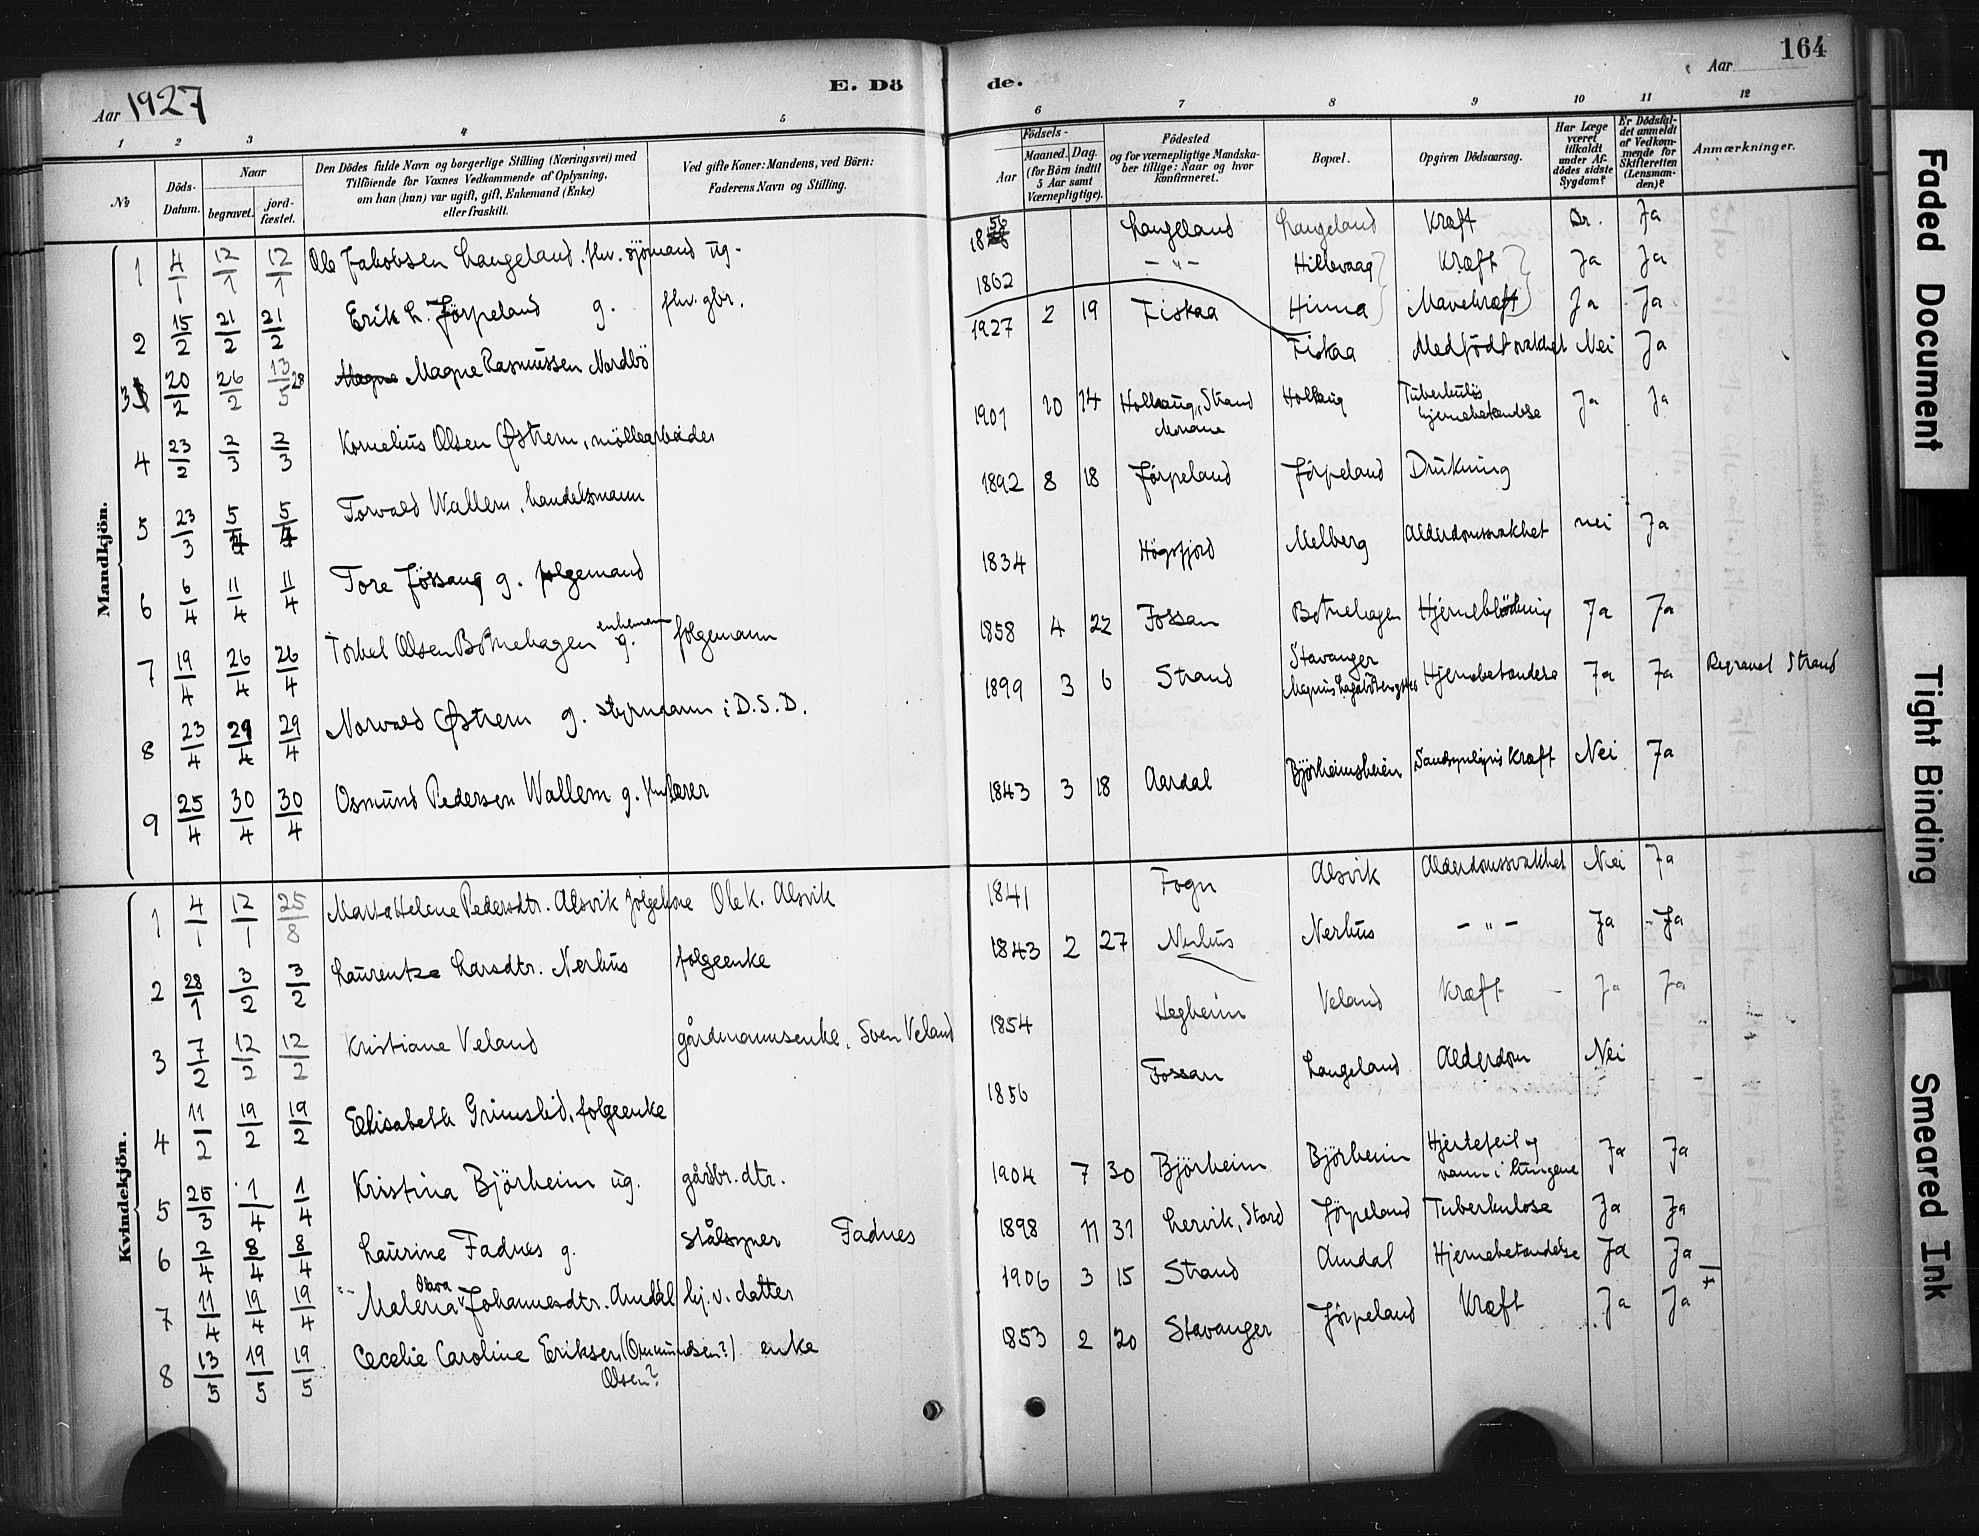 164
Aar 1927
E. Dö
de.
Aar
1 2 3 4 5
6 7 8 9 10 11 12
No
Döds-Datum.
Naar
begravet.
jord-fæstet.
Den Dödes fulde Navn og borgerlige Stilling (Næringsvei) med
Tilföiende for Voxnes Vedkommende af Oplysning,
om han (hun) var ugift, gift, Enkemand (Enke)
eller fraskilt.
Ved gifte Koner: Mandens, ved Börn:
Faderens Navn og Stilling.
Födsels-
Aar
Maaned. Dag.
(for Börn indtil
5 Aar samt
Værnepligtige).
Födested
og for værnepligtige Mandska-
ber tillige: Naar og hvor
konfirmeret.
Bopæl.
Opgiven Dödsaarsag.
Har Læge
været
tilkaldt
under Af-
dödes sidste
Sygdom?
Er Dödsfal-
det anmeldt
af Vedkom-
mende for
Skifteretten
(Lensman-
den)?
Anmærkninger.
Mandkjön.
1 4/1 12/1 12/1 Ole Jakobsen Langeland. fhv. sjömand ug. 1856 Langeland Langeland Kræft Dr. Ja
2 15/2 21/2 21/2 Erik L. Jörpeland g. fhv. gbr. 1862 - " - Hillevaag Kræft Ja Ja
Hinna Mavekræft Ja Ja
3 20/2 26/2 13/5 28 Magne Magne Rasmussen Nordbö 1927 2 19 Fiskaa Fiskaa Medfödt svakhet Nei Ja
4 23/2 2/3 2/3 Kornelius Olsen Østrem, möllearbeider 1901 10 14 Strand Tuberkulös hjernebetændelse Ja Ja
5 23/3 5/4 5/4 Torvald Wallem, handelsmann 1892 8 18 Jörpeland Jörpeland Drukning
6 6/4 11/4 11/4 Tore Jössang g. folgemand 1834 Högsfjord Melberg Alderdomssvakhet nei Ja
7 19/4 26/4 26/4 Torkel Olsen Botnehagen enkemann g. folgemann 1858 4 22 Fossan Botnehagen Hjerneblödning Ja Ja
8 23/4 29/4 29/4 Norvald Østrem g. styrmann i D.S.D. 1899 3 6 Strand Stavanger Hjernebetændelse Ja Ja Begravet Strand
9 25/4 30/4 30/4 Osmund Pedersen Wallem g. fhv lærer 1843 3 18 Aardal Björheimsheien Sandsynligvis Kræft Nei Ja
Kvindekjön.
1 4/1 12/1 25/8 Marta Helene Pedersdtr. Alsvik folgekone Ole K. Alsvik 1841 Fogn Alsvik Alderdomssvakhet Nei Ja
2 28/1 3/2 3/2 Laurentze Larsdtr. Nerhus folgeenke 1843 2 27 Nerhus Nerhus - " - Ja Ja
3 7/2 12/2 12/2 Kristiane Veland gårdmannsenke, Sven Veland 1854 Hegheim Veland Kræft Ja Ja
4 11/2 19/2 19/2 Elisabeth Grimslid, folgeenke 1856 Fossan Langeland Alderdom Nei
5 25/3 1/4 1/4 Kristina Björheim ug. gårdbr. dtr. 1904 7 30 Björheim Björheim Hjertefeil og vann i lungene Ja Ja
6 2/4 8/4 8/4 Laurine Fadnes g. Fadnes 1898 11 31 Lervik, Stord Jörpeland Tuberkulose Ja Ja
7 11/4 19/4 19/4 Malena Johannesdtr. Amdal hj. v. datter 1906 3 15 Strand Amdal Hjernebetændelse Ja Ja
8 13/5 19/5 19/5 Cecelie Caroline Eriksen (Osmundsen?) Olsen? enke 1853 2 20 Stavanger Jörpeland Kræft Ja Ja +
Faded Document
Tight Binding
Smeared Ink